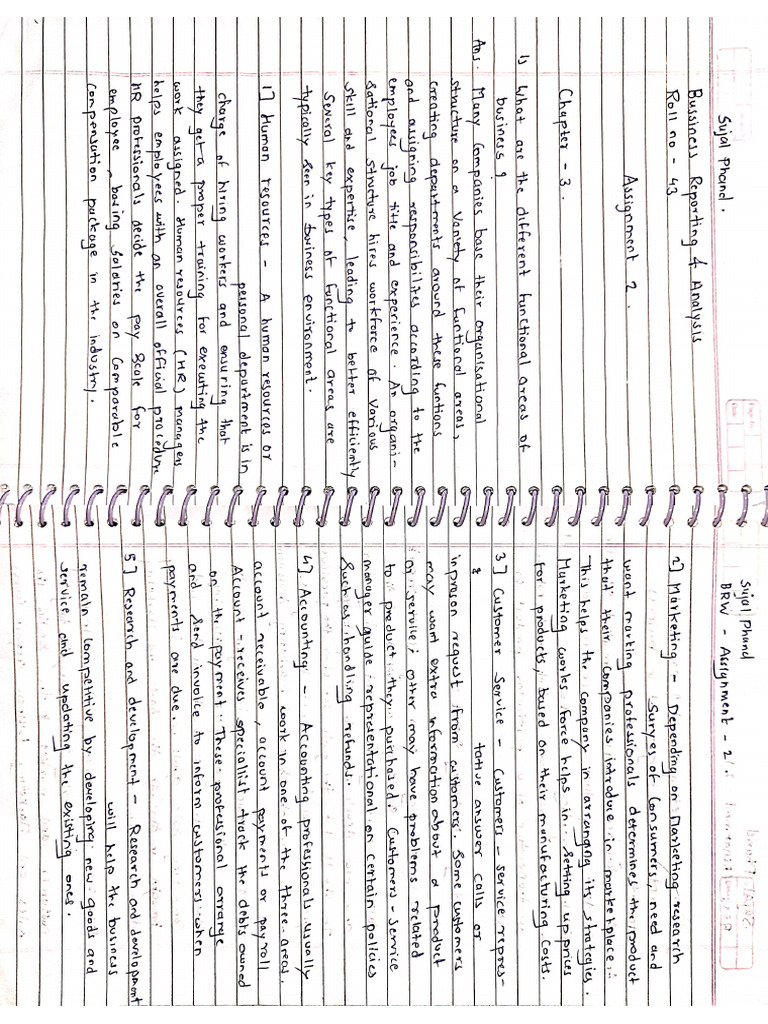 Sujal Phand.
Bussiness Reporting & Analysis
Roll no - 43
Assignment 2.
Chapter - 3.
1) What are the different functional areas of
business?
Ans. Many Companies base their organisational
structure on a Variety of funtional areas,
creating departments around these funtions
and assigning responsibilites according to the
employees job title and experience. An organi-
sational structure hires workforce of Various
skill and expertise, leading to better efficiently
Several key types of functional areas are
typically seen in business environment.
1] Human resources - A human resources or
personal department is in
charge of hiring workers and ensuring that
they get a proper training for executing the
work assigned. Human resources (HR) managers
helps employees with an overall official procedure
HR professionals decide the pay Scale for
employee, basing Salaries on Comparable
compensation package in the industry.
Sujal Phand
BRW - Assignment - 2.
2] Marketing - Depending on Marketing research
Surves of Consumers, need and
want marking professionals determines the product
that their Companies introduce in marketplace.
This helps the company in arranging its strategies.
Marketing works force helps in setting up prices
for products, based on their manufacturing Costs.
3] Customer Service - Customers - service repres-
& tative answer calls or
inprason request from customers. Some customers
may want extra information about a product
or service; other may have problems related
to product they purchased. Customers - Service
manager guide representational on certain policies
Such as handling refunds.
4] Accounting - Accounting professionals usually
work in one of the three areas.
account receivable, account payments or payroll
Account - receives specialist track the debts owned
on the payment. These professional arrange
and send invoice to inform customers when
payments are due.
5] Research and development - Research and development
will help the business
remain Competitive by developing new goods and
service and updating the existing ones.